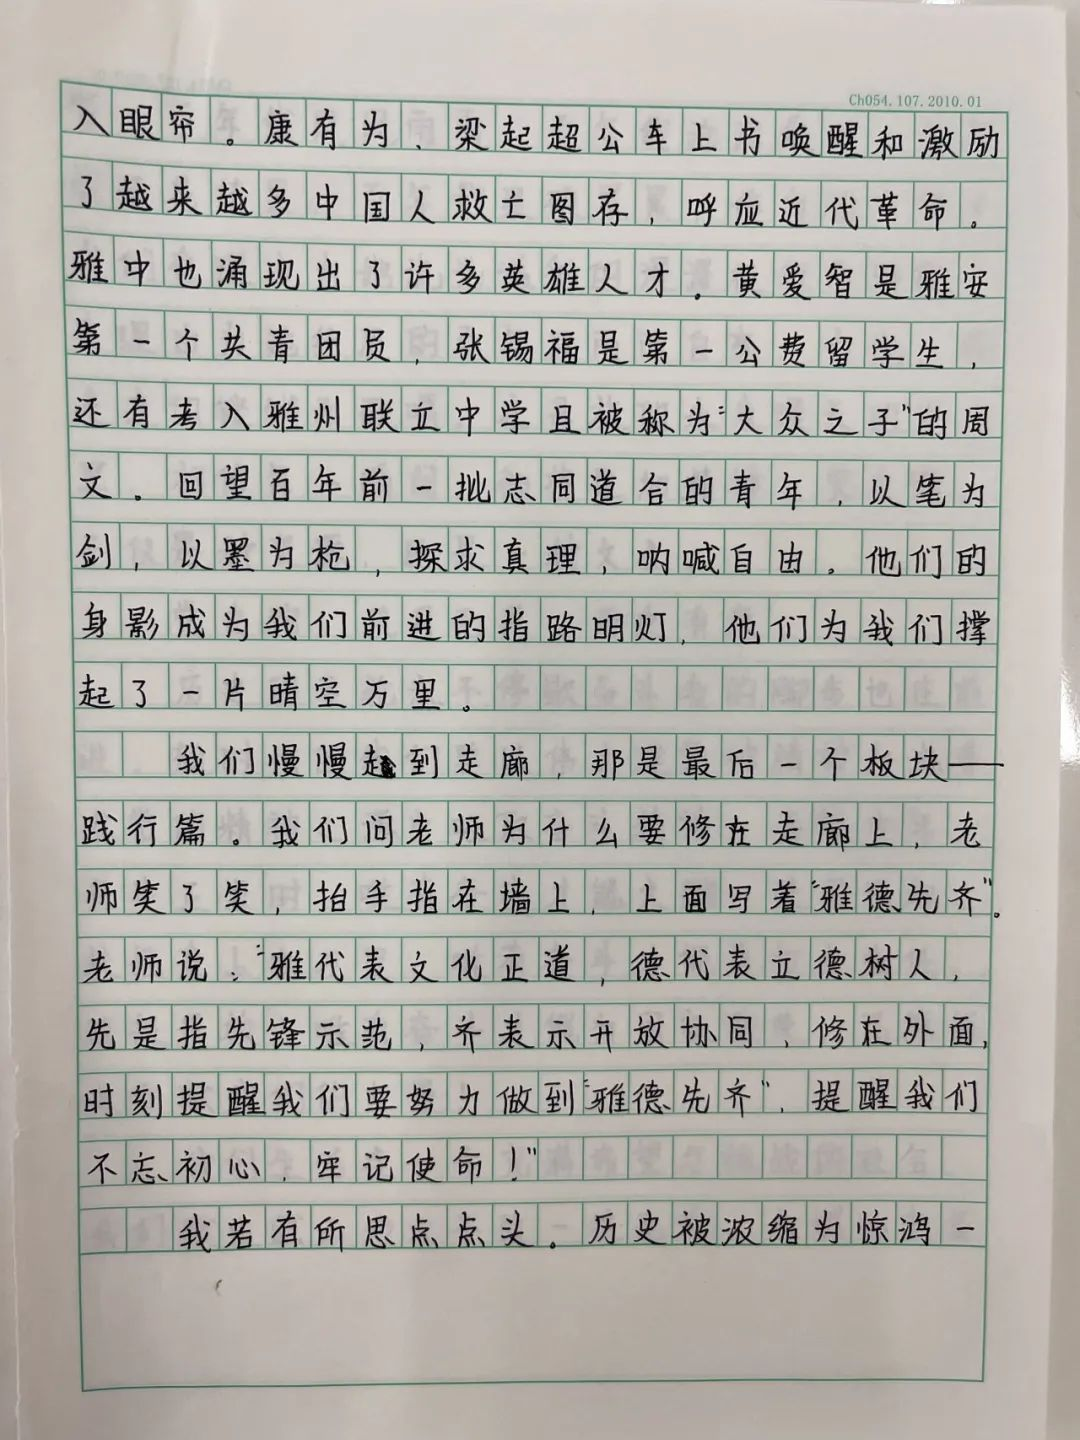 Ch054.107.2010.01
入眼帘。康有为、梁起超公车上书唤醒和激励
了越来越多中国人救亡图存，呼应近代革命。
雅中也涌现出了许多英雄人才。黄爱智是雅安
第一个共青团员，张锡福是第一公费留学生，
还有考入雅州联立中学且被称为“大众之子”的周
文。回望百年前一批志同道合的青年，以笔为
剑，以墨为枪，探求真理，呐喊自由。他们的
身影成为我们前进的指路明灯，他们为我们撑
起了一片晴空万里。
我们慢慢走到走廊，那是最后一个板块——
践行篇。我们问老师为什么要修在走廊上，老
师笑了笑，抬手指在墙上，上面写着“雅德先齐”。
老师说：“雅代表文化正道，德代表立德树人，
先是指先锋示范，齐表示开放协同，修在外面，
时刻提醒我们要努力做到“雅德先齐”，提醒我们
不忘初心，牢记使命！”
我若有所思点点头。历史被浓缩为惊鸿一